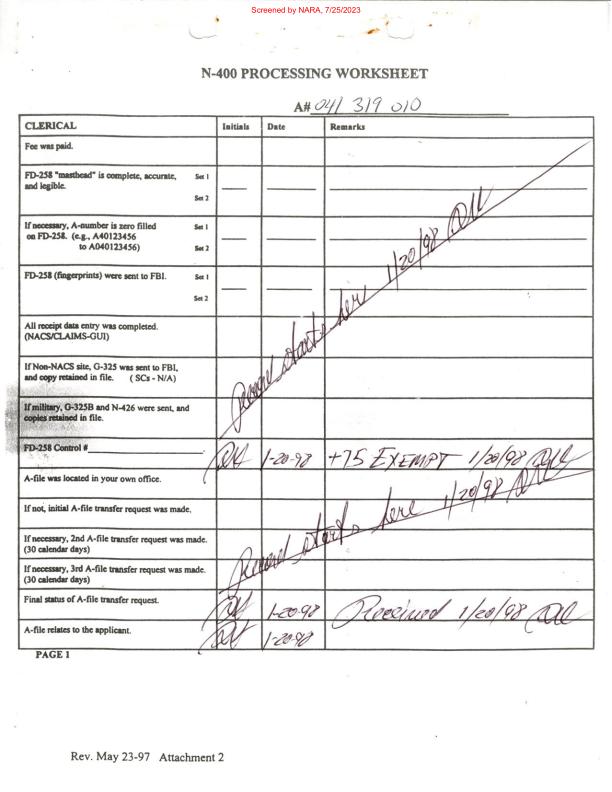 Screened by NARA, 7/25/2023
N-400 PROCESSING WORKSHEET
A# 041 319 010
CLERICAL Initials Date Remarks
Fee was paid.
FD-258 "masthead" is complete, accurate, Set 1
and legible.
Set 2
If necessary, A-number is zero filled Set 1
on FD-258. (e.g., A40123456
to A040123456) Set 2
FD-258 (fingerprints) were sent to FBI. Set 1
Set 2
Record starts here 1/20/98
All receipt data entry was completed.
(NACS/CLAIMS-GUI)
If Non-NACS site, G-325 was sent to FBI,
and copy retained in file. ( SCs - N/A)
If military, G-325B and N-426 were sent, and
copies retained in file.
FD-258 Control # 1-20-98 +75 EXEMPT 1/20/98
A-file was located in your own office.
If not, initial A-file transfer request was made.
Record starts here 1/20/98
If necessary, 2nd A-file transfer request was made.
(30 calendar days)
If necessary, 3rd A-file transfer request was made.
(30 calendar days)
Final status of A-file transfer request. 1-20-98 Received 1/20/98
A-file relates to the applicant. 1-20-98
PAGE 1
Rev. May 23-97 Attachment 2